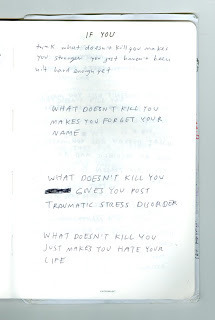 IF YOU
think what doesn't kill you makes
you stronger you just haven't been
hit hard enough yet
WHAT DOESN'T KILL YOU
MAKES YOU FORGET YOUR
NAME
WHAT DOESN'T KILL YOU
GIVES YOU POST
TRAUMATIC STRESS DISORDER
WHAT DOESN'T KILL YOU
JUST MAKES YOU HATE YOUR
LIFE